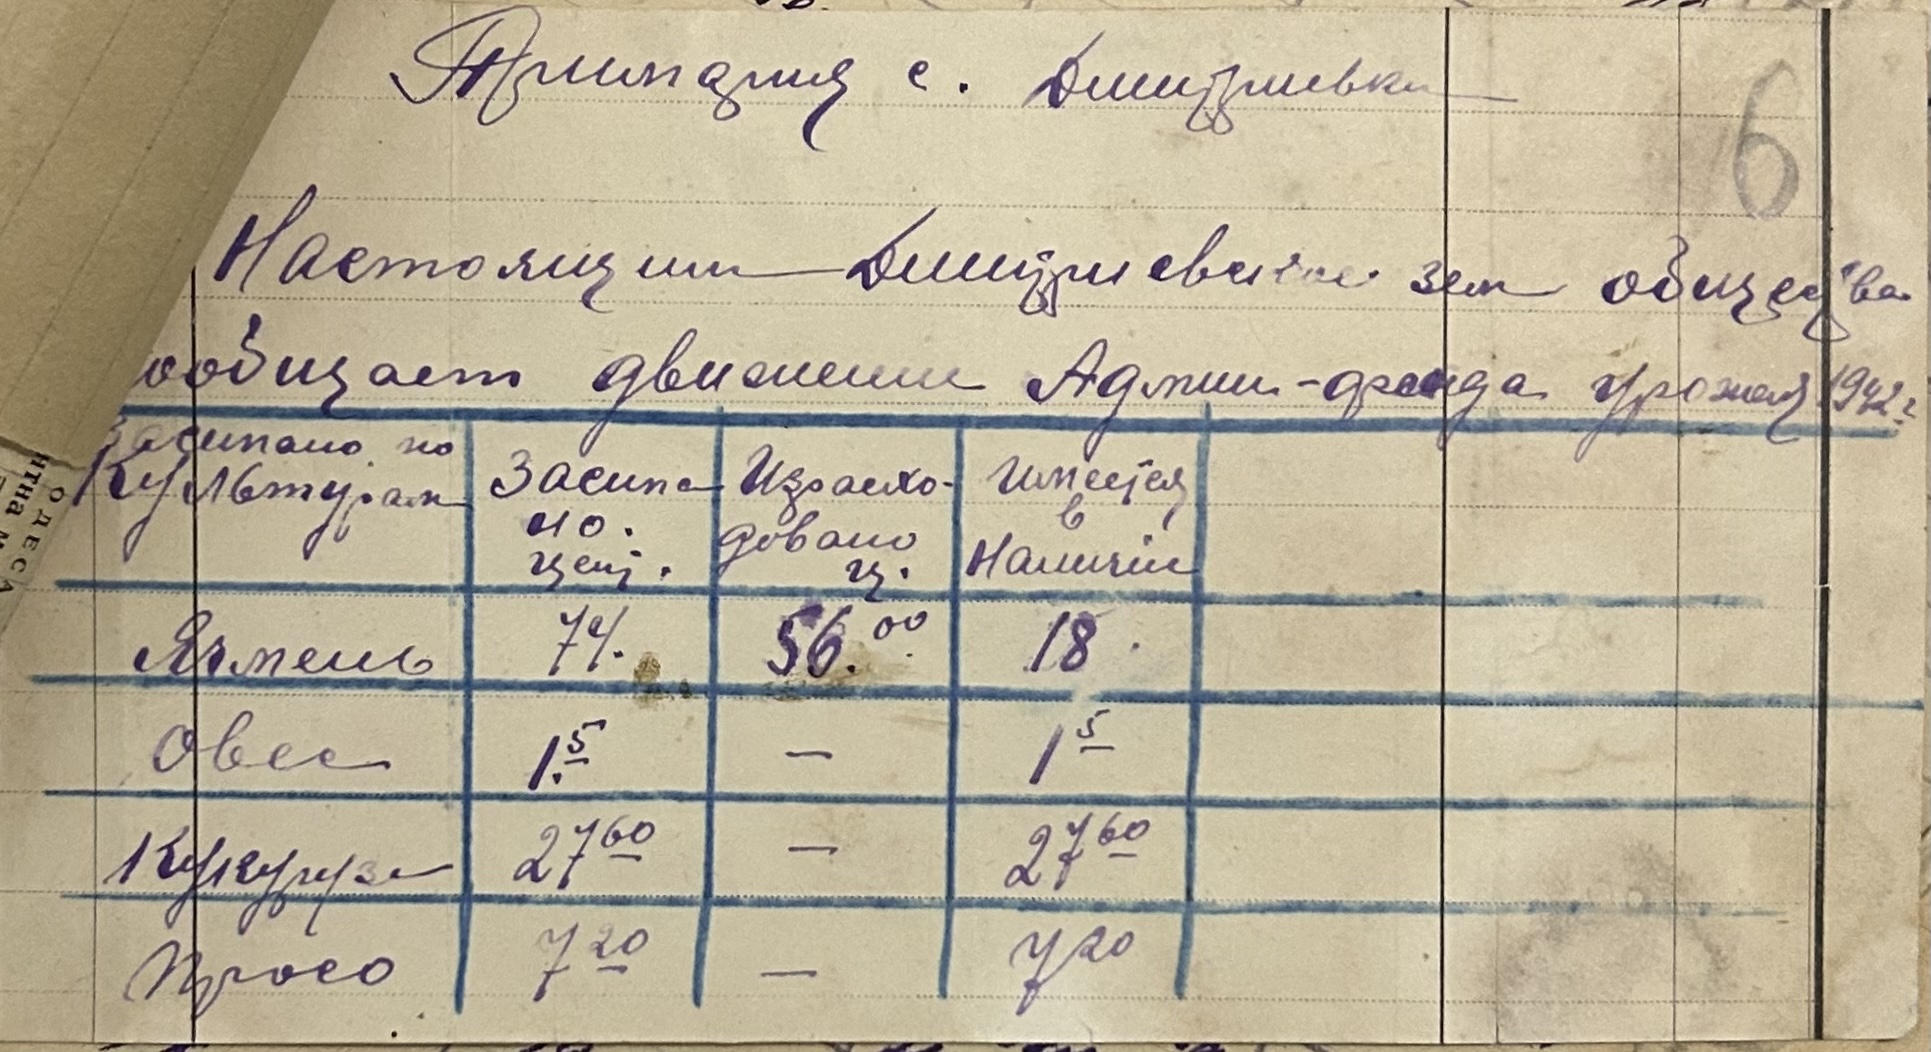 Примария с. Дмитриевки
6
Настоящим Дмитриевское зем общество
сообщает движении Админ-фонда урожая 1942 г.
Засипано по Культурам | Засипано. цент. | Израсходовано ц. | Имеется в Наличии
Ячмень 74. 56.00 18.
Овес 1.5 — 1 5
Кукуруза 27 60 — 27 60
Просо 7 20 — 7 20
ОДЕСА